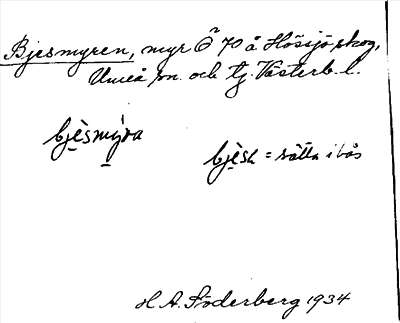 Bjesmyren, myr Ö 70 å Hössjö skog,
Umeå sn. och tg. Västerb. l.
bjèsmýra
bjèsa = sätta i bås
H A. Söderberg 1934